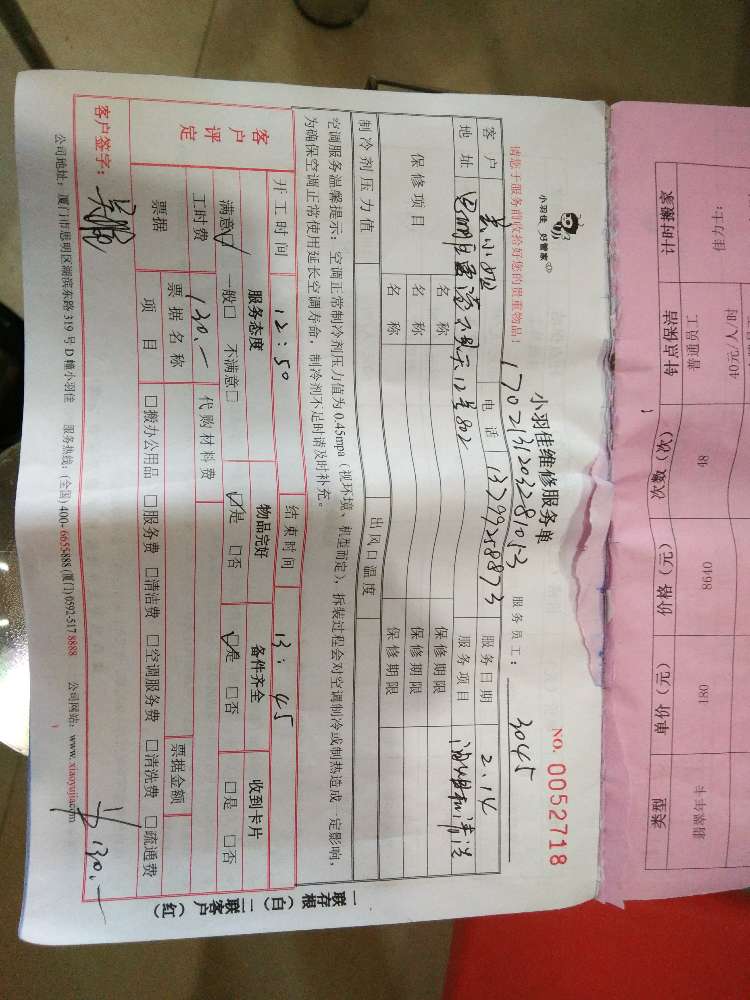 小羽佳 好管家
小羽佳维修服务单
NO. 0052718
请您于服务前收拾好您的贵重物品！
1702131203281053
服务员工： 3045
客户 黄小姐 电话 13799258873 服务日期 2.14
地址 12号802 服务项目 油烟机清洗
保修项目 名称 保修期限
名称 保修期限
名称 保修期限
制冷剂压力值 出风口温度
空调服务温馨提示：空调正常制冷剂压力值为0.45mpa（视环境、机型而定），拆装过程会对空调制冷或制热造成一定影响，
为确保空调正常使用延长空调寿命，制冷剂不足时请及时补充。
开工时间 12:50 结束时间 13:45
客户评定 服务态度 物品完好 备件齐全 收到卡片
满意□ 一般□ 不满意□ □是 □否 □是 □否 □是 □否
工时费 130.— 代购材料费
票据 票据名称 票据金额
项目 □搬办公用品 □服务费 □清洁费 □空调服务费 □清洗费 □疏通费
客户签字： ¥130.—
公司地址：厦门市思明区湖滨东路319号D幢小羽佳 服务热线：(全国)400-6655888(厦门)0592-5178888 公司网站：www.xiaoyujia.com
一联存根（白）二联客户（红）
计时搬家 钟点保洁 次数（次） 价格（元） 单价（元） 类型
佳力士： 普通员工 48 8640 180
40元/人/时